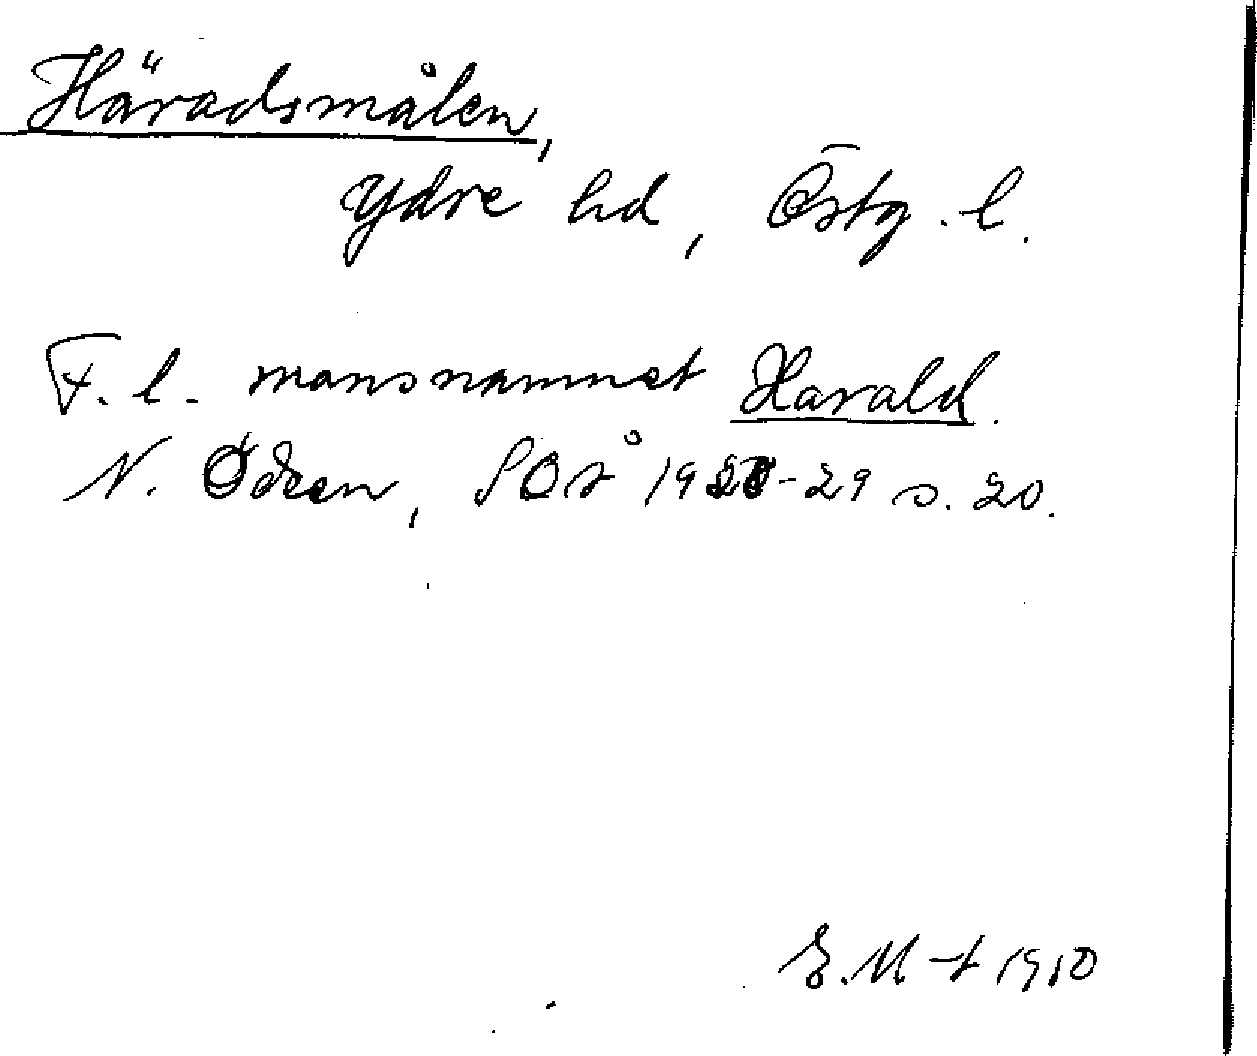 Häradsmålen,
Ydre hd, Östg. l.
F. l. mansnamnet Harald.
N. Ödeen, SOÅ 1928-29 s. 20.
E. M-t 1910